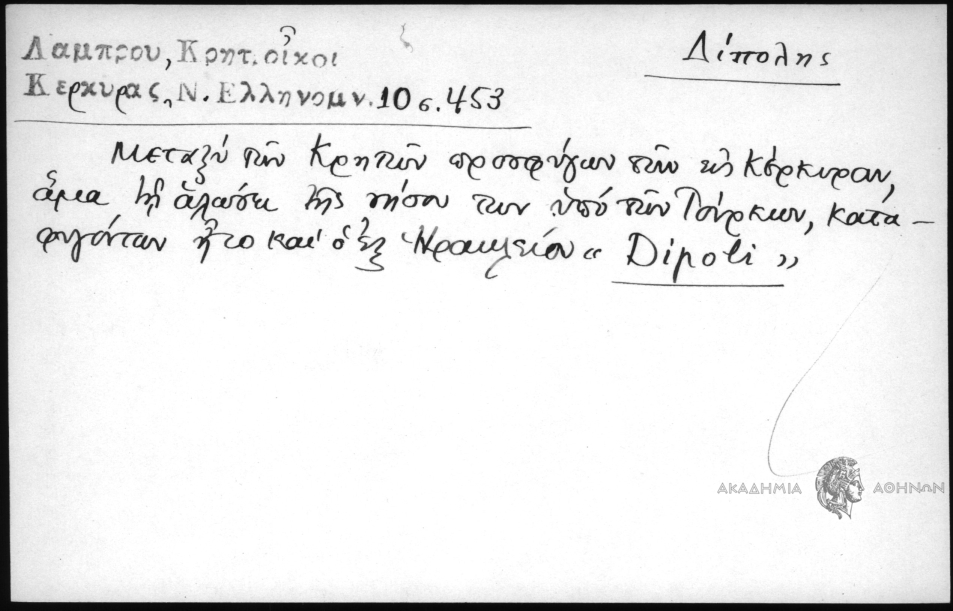 Λαμπρου, Κρητ. οἶκοι
Κερκυρας, Ν. Ελληνομν. 10 σ. 453
Δίπολης
Μεταξύ τῶν Κρητῶν προσφύγων τῶν εἰς Κέρκυραν,
ἅμα τῇ ἁλώσει τῆς νήσου των ὑπό τῶν Τούρκων, κατα-
φυγόντων ἦτο καί ὁ ἐξ Ἡρακλείου « Dipoli »
ΑΚΑΔΗΜΙΑ ΑΘΗΝΩΝ